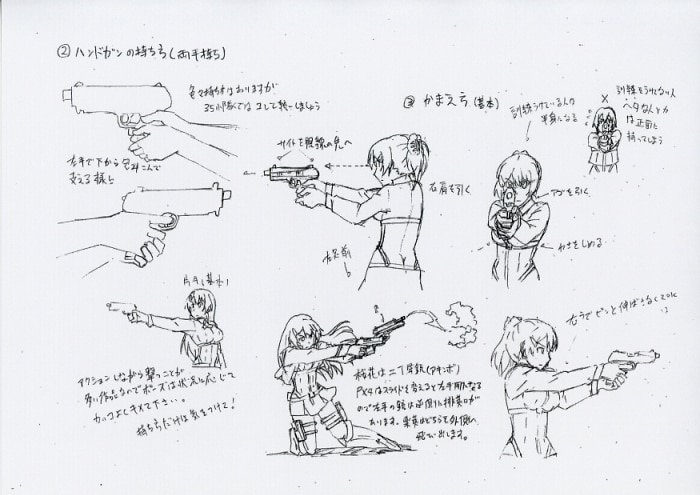 ② ハンドガンの持ち方(両手持ち)
色々持ち方はありますが
35小隊ではコレで統一しましょう
左手で下から包みこんで
支える様に
③ かまえ方 (基本)
サイトを眼線の先へ
右肩を引く
左足前
訓練うけている人は
半身になる
アゴを引く
わきをしめる
×
訓練をうけてない人
ヘタな人とか
は正面に
持ってしまう
片手(基本)
アクションしながら撃つことが
多い作品なのでポーズは状況に応じて
カッコよくキメて下さい。
持ち方だけは気をつけて!
桜花は二丁拳銃(アキンボ)
PX4はスライドを変えると左手用になる
ので左手の銃は逆側に排莢口が
あります。薬莢はどちらも外側へ
飛び出します。
右うでピンと伸ばさなくてOK